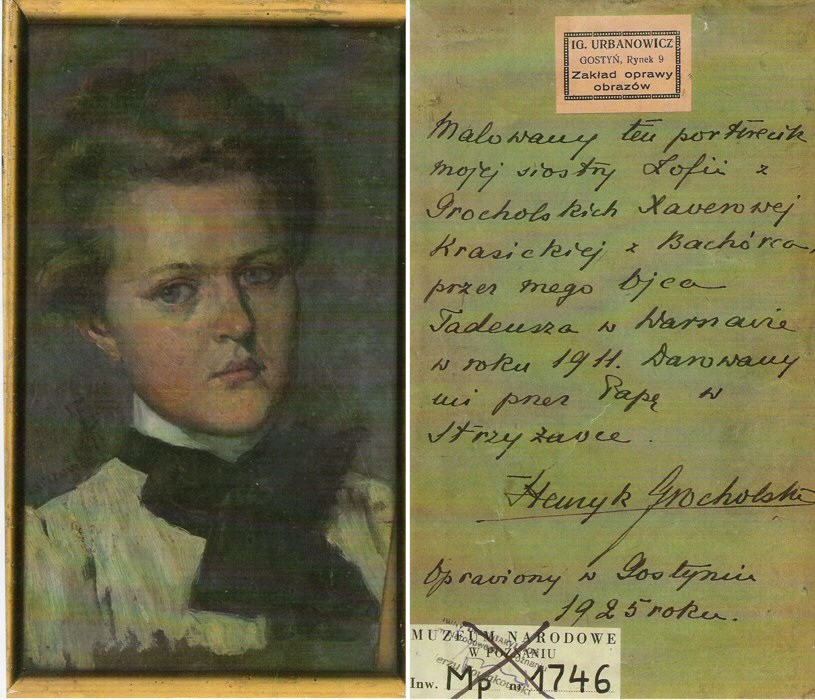 IG. URBANOWICZ
GOSTYŃ, Rynek 9
Zakład oprawy
obrazów
Malowany ten portrecik
mojej siostry Zofii z
Grocholskich Xawerowej
Krasickiej z Bachórca,
przez mego Ojca
Tadeusza w Warszawie
w roku 1911. Darowany
mi przez Papę w
Strzyżawce.
Henryk Grocholski
Oprawiony w Gostyniu
1925 roku.
MUZEUM NARODOWE
W POZNANIU
Inw. Mp nr 1746